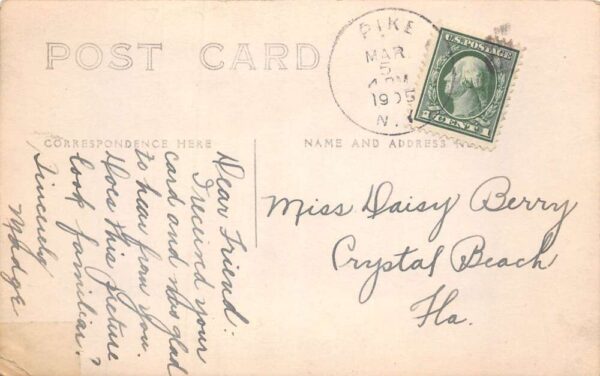 POST CARD
PIKE
MAR.
5
1905
N.
U.S. POSTAGE
1 CENT 1
CORRESPONDENCE HERE
NAME AND ADDRESS
Dear Friend:-
I received your
card and was glad
to hear from you.
Does this picture
look familiar?
Sincerely
Madge
Miss Daisy Berry
Crystal Beach
Fla.